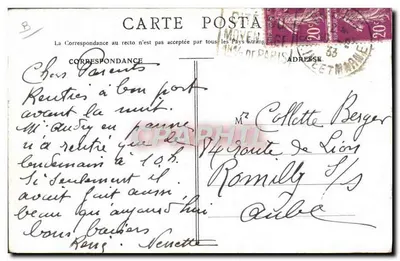 B
CARTE POSTALE
La Correspondance au recto n'est pas acceptée par tous les pays
CORRESPONDANCE
ADRESSE
MOYEN AGE
DE PARIS
SEINE ET MARNE
33
20
20
Chers Parents
Rentrés à bon port
avant la nuit.
Mr en panne
n'a rentré que le
lendemain à 10h.
Si seulement il
avait fait aussi
beau qu'aujourd'hui
bons baisers
René Nenette
Mr Collette Berger
74 Route de Lion
Romilly S/S
Aube
CPAPHIL